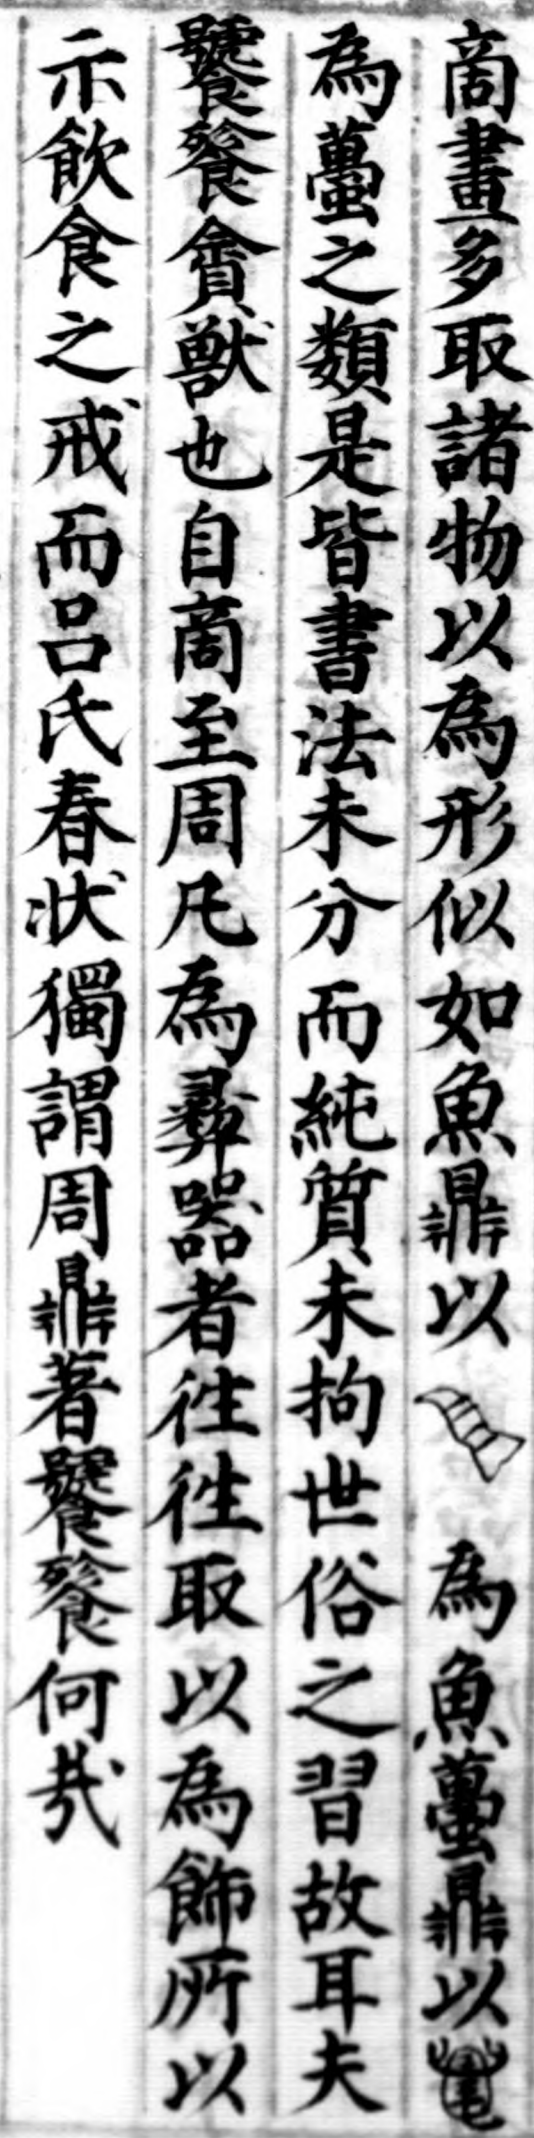 商畫多取諸物以爲形似如魚鼎以爲魚蠆鼎以
爲蠆之類是皆書法未分而純質未拘世俗之習故耳夫
饕餮貪獸也自商至周凡爲彝器者往往取以爲飾所以
示飲食之戒而呂氏春秋獨謂周鼎著饕餮何哉